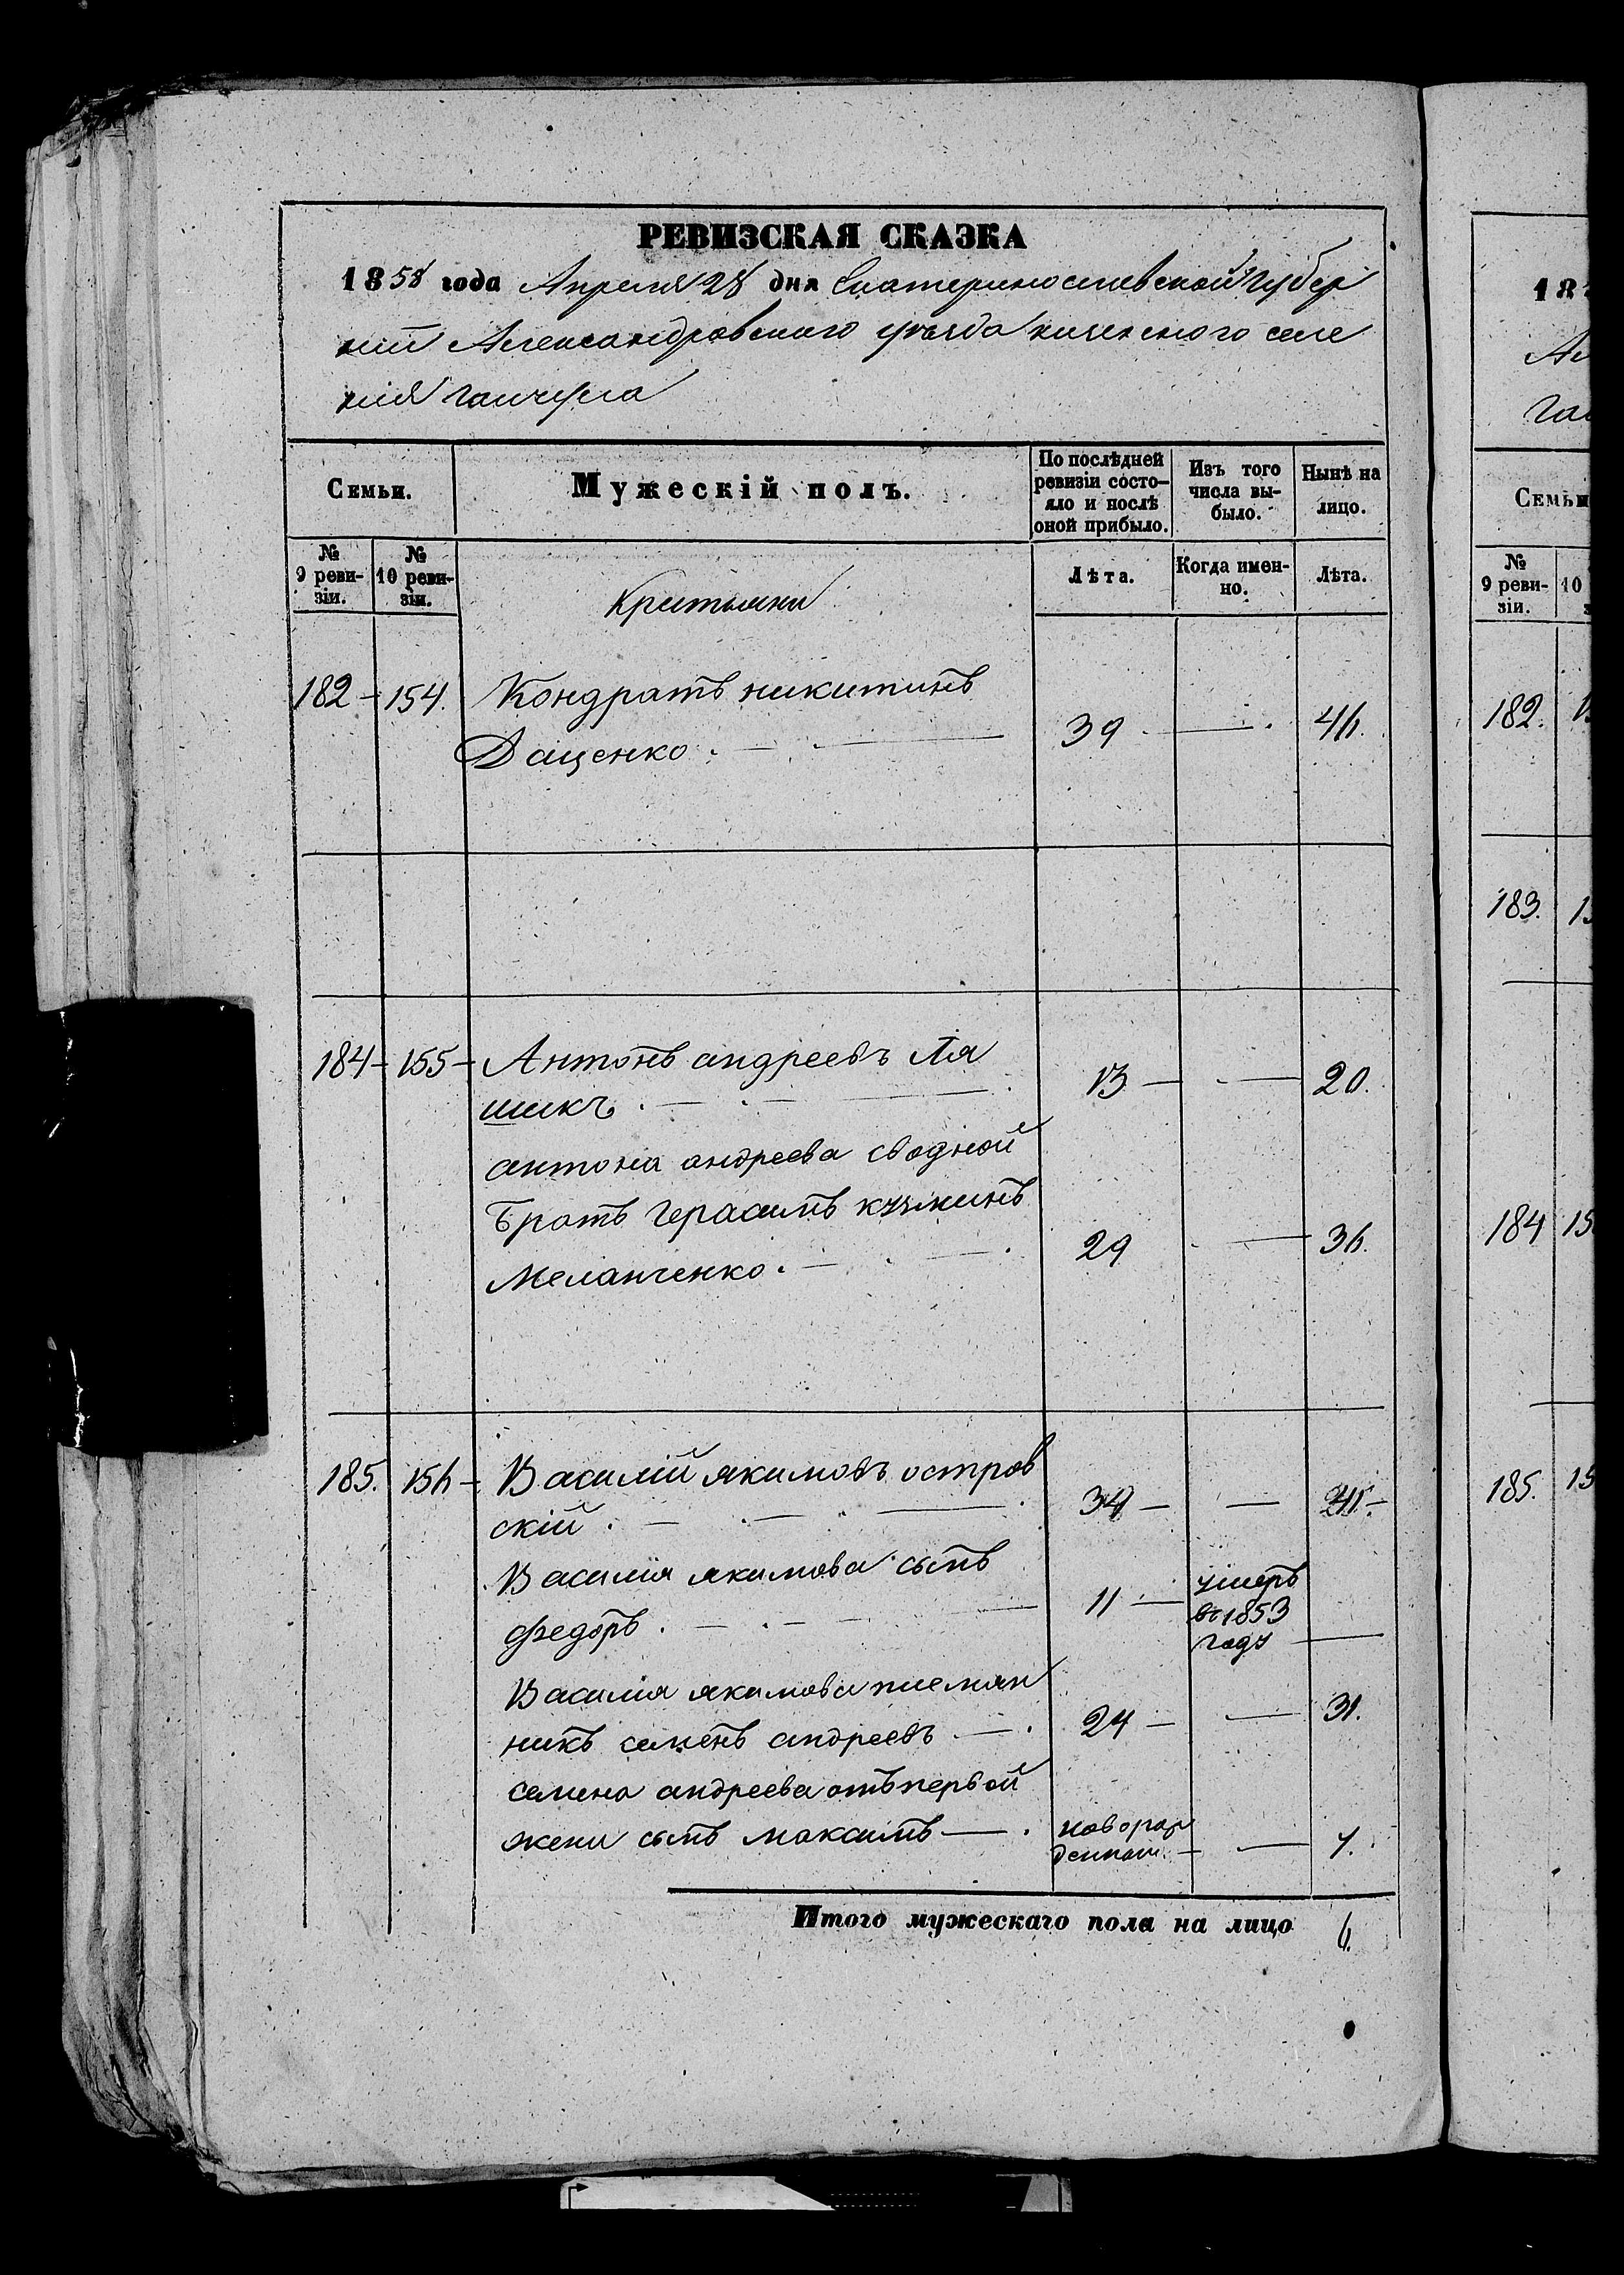 РЕВИЗСКАЯ СКАЗКА
1858 года Апреля 28 дня Екатеринославской губер
нии Александровского уезда казенного селе
ния гайчула
Семьи.
Мужескій полъ.
По послѣдней
ревизіи состо-
яло и послѣ
оной прибыло.
Изъ того
числа вы-
было.
Нынѣ на
лицо.
№
9 реви-
зіи.
№
10 реви-
зіи.
Лѣта.
Когда имен-
но.
Лѣта.
182 - 154. Кондратъ никитинъ
Даценко. 39 46.
184 - 155 - Антонъ андреевъ Ля
шикъ. 13 20.
антона андреева сводной
братъ герасимъ кузминъ
Меланченко. 29 36.
185. 156 - Василий якимовъ остров
скій. 34 41.
Василия якимова сынъ
федоръ. 11 умеръ
въ 1853
году
Василия якимова племян
никъ семенъ андреевъ 24 31.
семена андреева отъ первой
жени сынъ максимъ новорож
денный 7.
Итого мужескаго пола на лицо 6.
18
Ал
Гай
Семьи
№
9 реви-
зіи.
10
182.
183.
184
185.